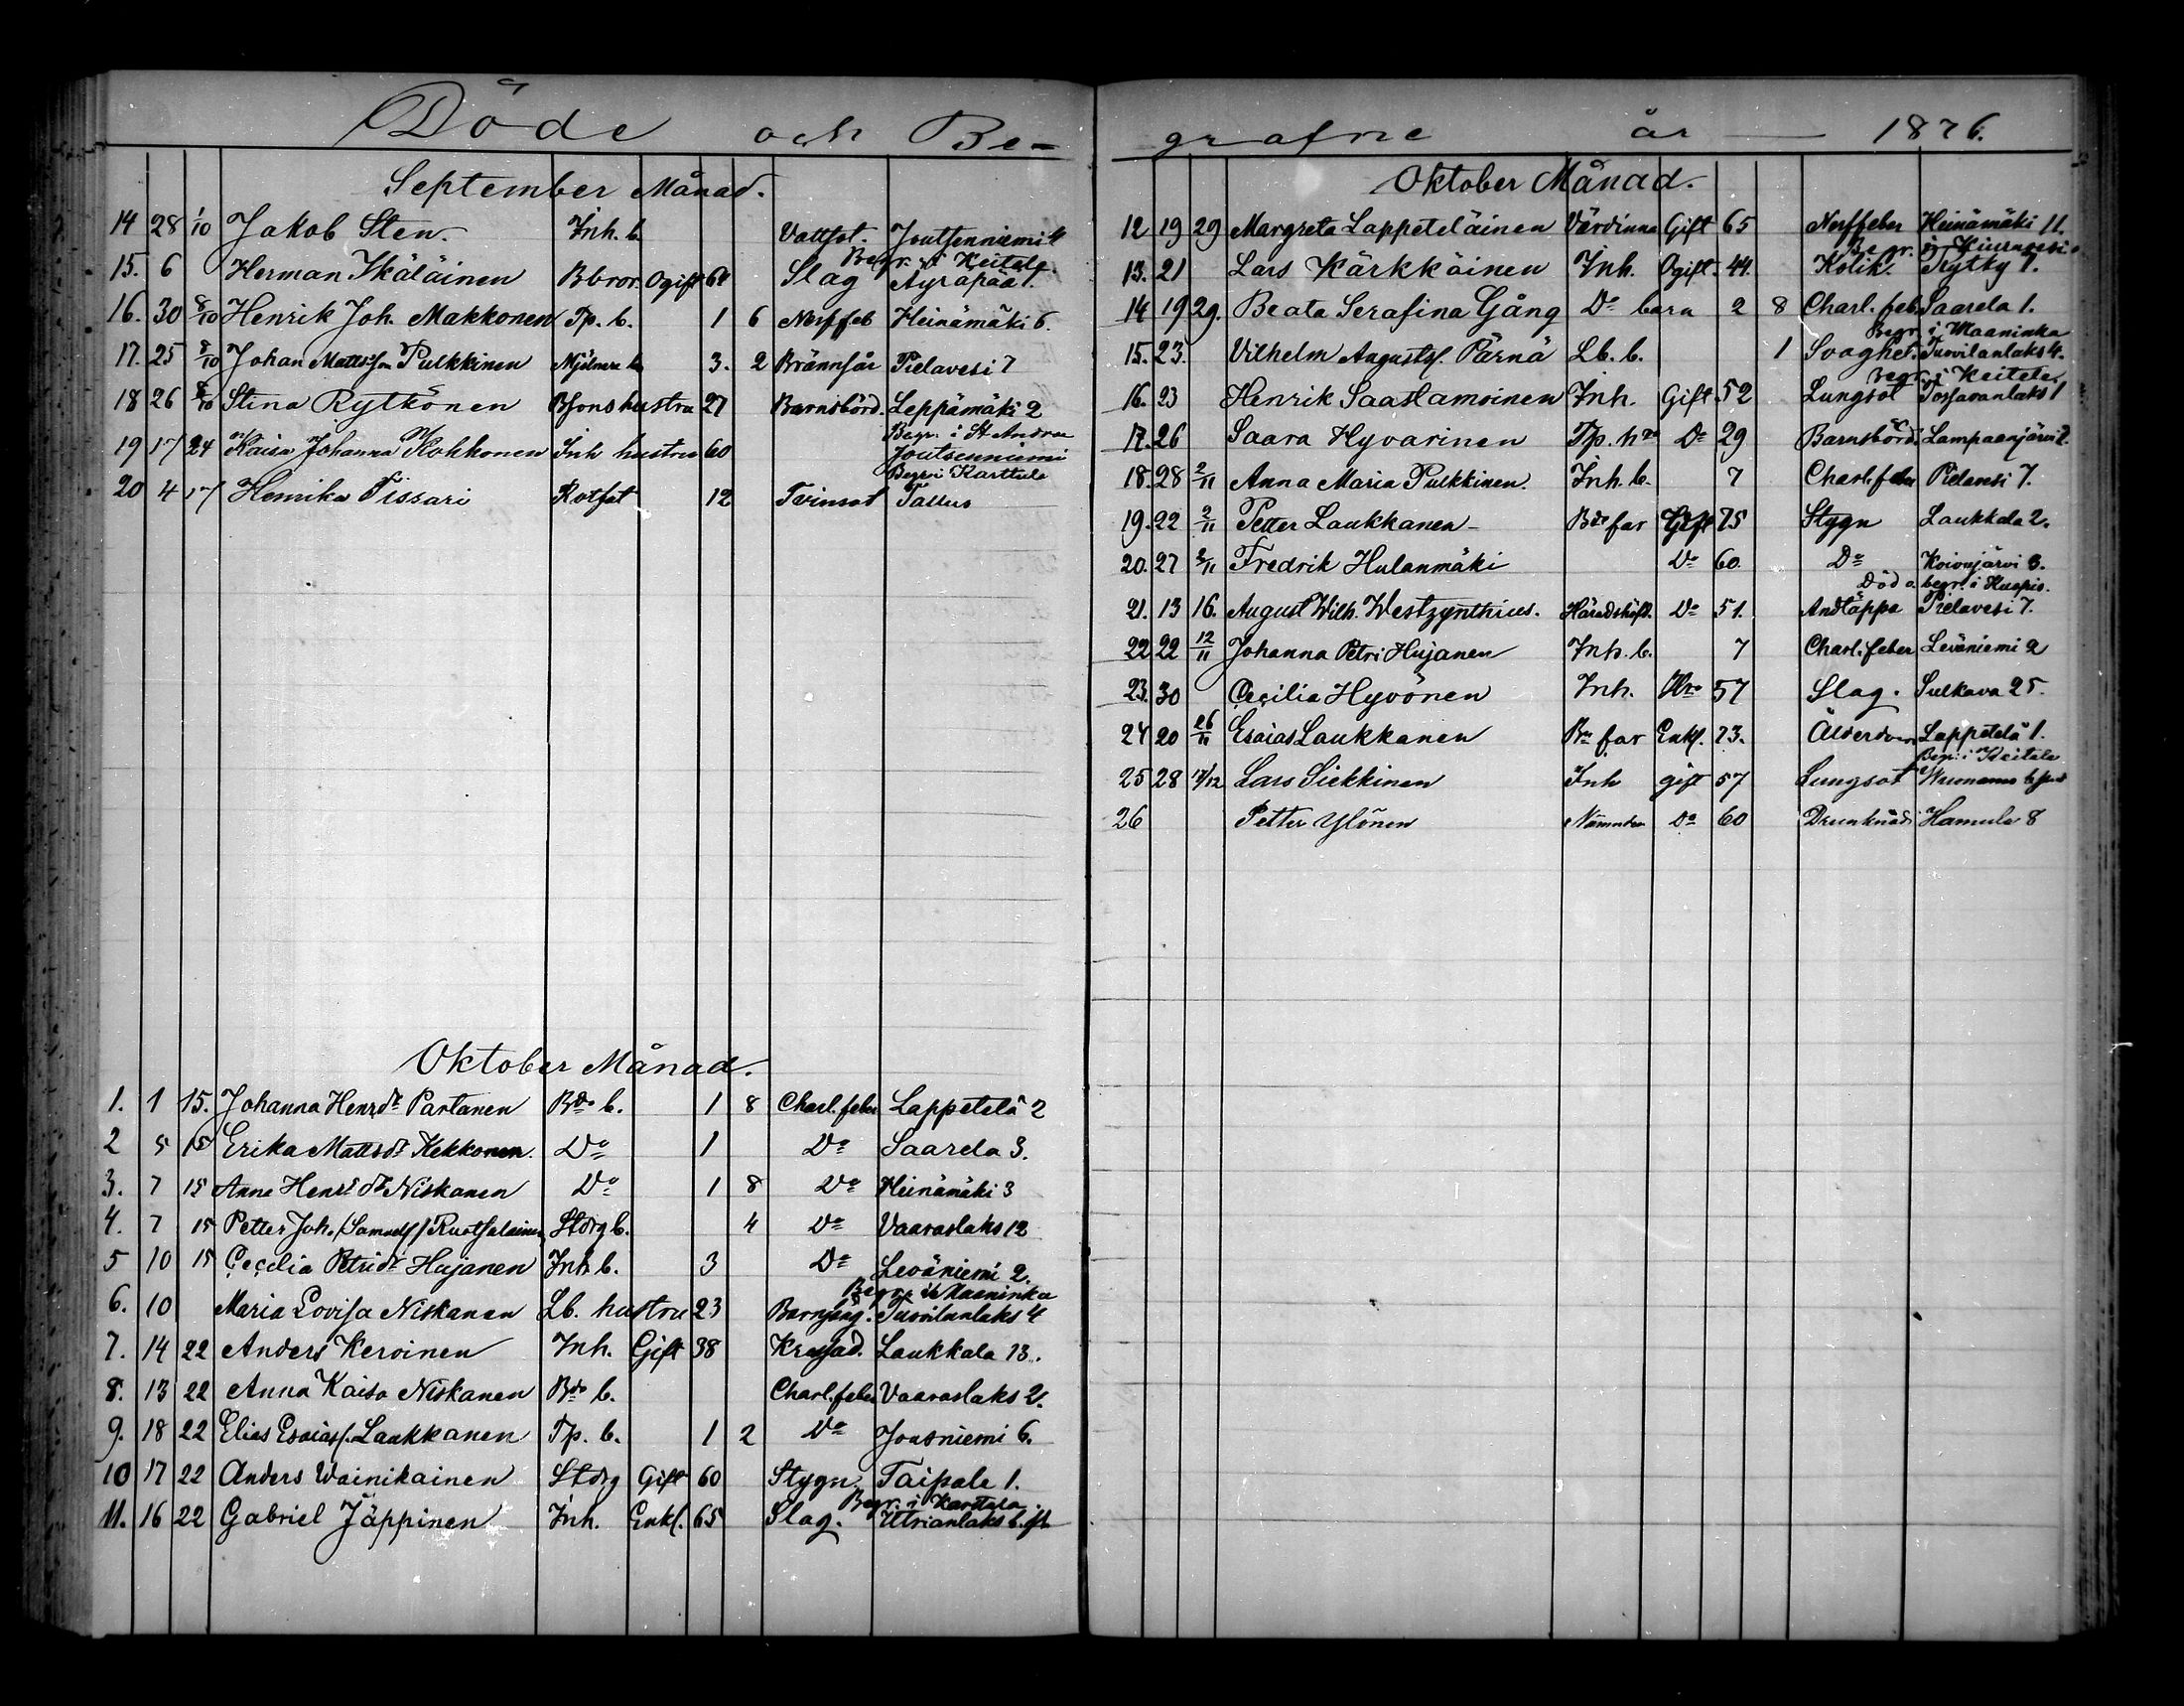 Döde och Be-
September Månad.
14 28 1/10 Jakob Sten. Inh. b. Vattsot. Joutsenniemi 4
Begr. i Keitele.
15. 6 Herman Ikäläinen Bbror. Ogift 61 Slag Äyräpää 1.
16. 30 8/10 Henrik Joh. Makkonen Tp. b. 1 6 Nerffeb Heinämäki 6.
17. 25 8/10 Johan Mattsson Pulkkinen Mjölnare b. 3. 2 Brännsår Pielavesi 7
18 26 8/10 Stina Rytkönen Bsons hustru 27 Barnsbörd. Leppämäki 2
Begr. i St Andrae
19 17 24 Kaisa Johanna Kohkonen Inh hustru 60 Joutsenniemi
Begr i Karttula
20 4 17 Henrika Tissari Rotfat 12 Tvinsot Tallus
Oktober Månad.
1. 1 15. Johanna Henrdr Partanen Bde b. 1 8 Charl. feber Lappetelä 2
2 5 15 Erika Mattsdr Kekkonen. Do 1 Do Saarela 3.
3. 7 15 Anna Henr dr Niskanen Do 1 8 Do Heinämäki 3
4. 7 15 Petter Joh. /Samuels/ Ruotsalainen Stdrg b. 4 Do Vaaraslaks 12
5 10 15 Cecilia Petridr Hujanen Inh b. 3 Do Leväniemi 2.
Begr. i Maaninka
6. 10 Maria Lovisa Niskanen Lb. hustru 23 Barnsäng. Tuovilanlaks 4
7. 14 22 Anders Keroinen Inh. Gift 38 Laukkala 13.
8. 13 22 Anna Kaisa Niskanen Bde b. Charl. feber Vaaraslaks 2.
9. 18 22 Elias Esaiass. Laukkanen Tp. b. 1 2 Do Jousniemi 6.
10 17 22 Anders Wainikainen Stdrg Gift 60 Stygn Taipale 1.
Begr. i Karttula.
11. 16 22 Gabriel Jäppinen Inh. Enkl. 65 Slag. Utrianlaks
grafne år 1876.
Oktober Månad.
12 19 29 Margreta Lappeteläinen Värdinna Gift 65 Nerffeber Heinämäki 11.
Begr. i Kiuruvesi.
13. 21 Lars Kärkkäinen Inh. Ogift. 44. Kolik. Rytky 7.
14 19 29. Beata Serafina Gång Do barn 2 8 Charl. feb. Saarela 1.
Begr. i Maaninka
15. 23. Vilhelm Augusts. Pärnä Lb. b. 1 Svaghet. Tuovilanlaks 4.
Begr. i Keitele
16. 23 Henrik Saastamoinen Inh. Gift. 52 Lungsot
17. 26 Saara Hyvarinen Tp. hru Do 29 Barnsbörd. Lampaanjärvi 2.
18. 28 2/11 Anna Maria Pulkkinen. Inh. b. 7 Charl. feber Pielavesi 7.
19. 22 2/11 Petter Laukkanen Bde far Gift 75 Stygn Laukkala 2.
20. 27 2/11 Fredrik Hulanmäki Do 60. Do Koivujärvi 3.
Död o. begr. i Kuopio.
21. 13 16. August Wilh. Westzynthius. Häradshöfd. Do 51. Andtäppa Pielavesi 7.
22 22 12/11 Johanna Petri Hujanen Inh. b. 7 Charl. feber Leväniemi 2
23. 30 Cecilia Hyvönen Inh. Hru 57 Slag. Sulkava 25.
24 20 26/11 Esaias Laukkanen Bde far Enkl. 73. Ålderdom Lappetelä 1.
Begr. i Keitele
25 28 Lars Siekkinen Inh gift 57 Lungsot
26 Petter Ylönen Nämndem Do 60 Drunknad Hamula 8